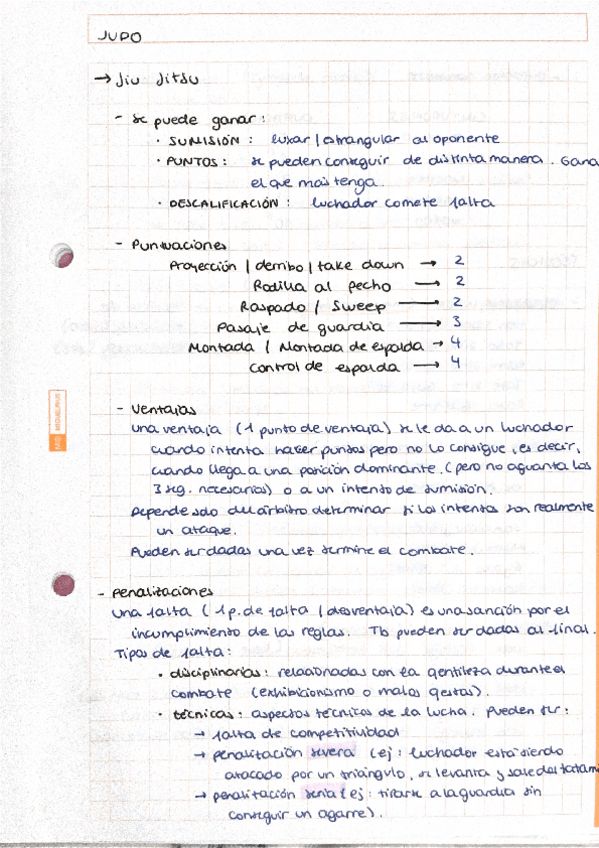 JUDO
→ Jiu Jitsu
- Se puede ganar:
· SUMISIÓN: luxar / estrangular al oponente
· PUNTOS: se pueden conseguir de distinta manera. Gana
el que más tenga.
· DESCALIFICACIÓN: luchador comete falta
- Puntuaciones
Proyección / derribo / take down → 2
Rodilla al pecho → 2
Raspado / Sweep → 2
Pasaje de guardia → 3
Montada / Montada de espalda → 4
Control de espalda → 4
- Ventajas
una ventaja (1 punto de ventaja) se le da a un luchador
cuando intenta hacer puntos pero no lo consigue, es decir,
cuando llega a una posición dominante. (pero no aguanta los
3 seg. necesarios) o a un intento de sumisión.
Depende solo del árbitro determinar si los intentos son realmente
un ataque.
Pueden ser dadas una vez termine el combate.
- Penalizaciones
una falta (1 p. de falta / desventaja) es una sanción por el
incumplimiento de las reglas. Tb pueden ser dadas al final.
Tipos de falta:
· disciplinarias: relacionadas con la gentileza durante el
combate (exhibicionismo o malos gestos).
· técnicas: aspectos técnicos de la lucha. Pueden ser:
→ falta de competitividad
→ penalización severa (ej: luchador está siendo
atacado por un triángulo, se levanta y sale del tatami
→ penalización seria (ej: tirarse a la guardia sin
conseguir un agarre).